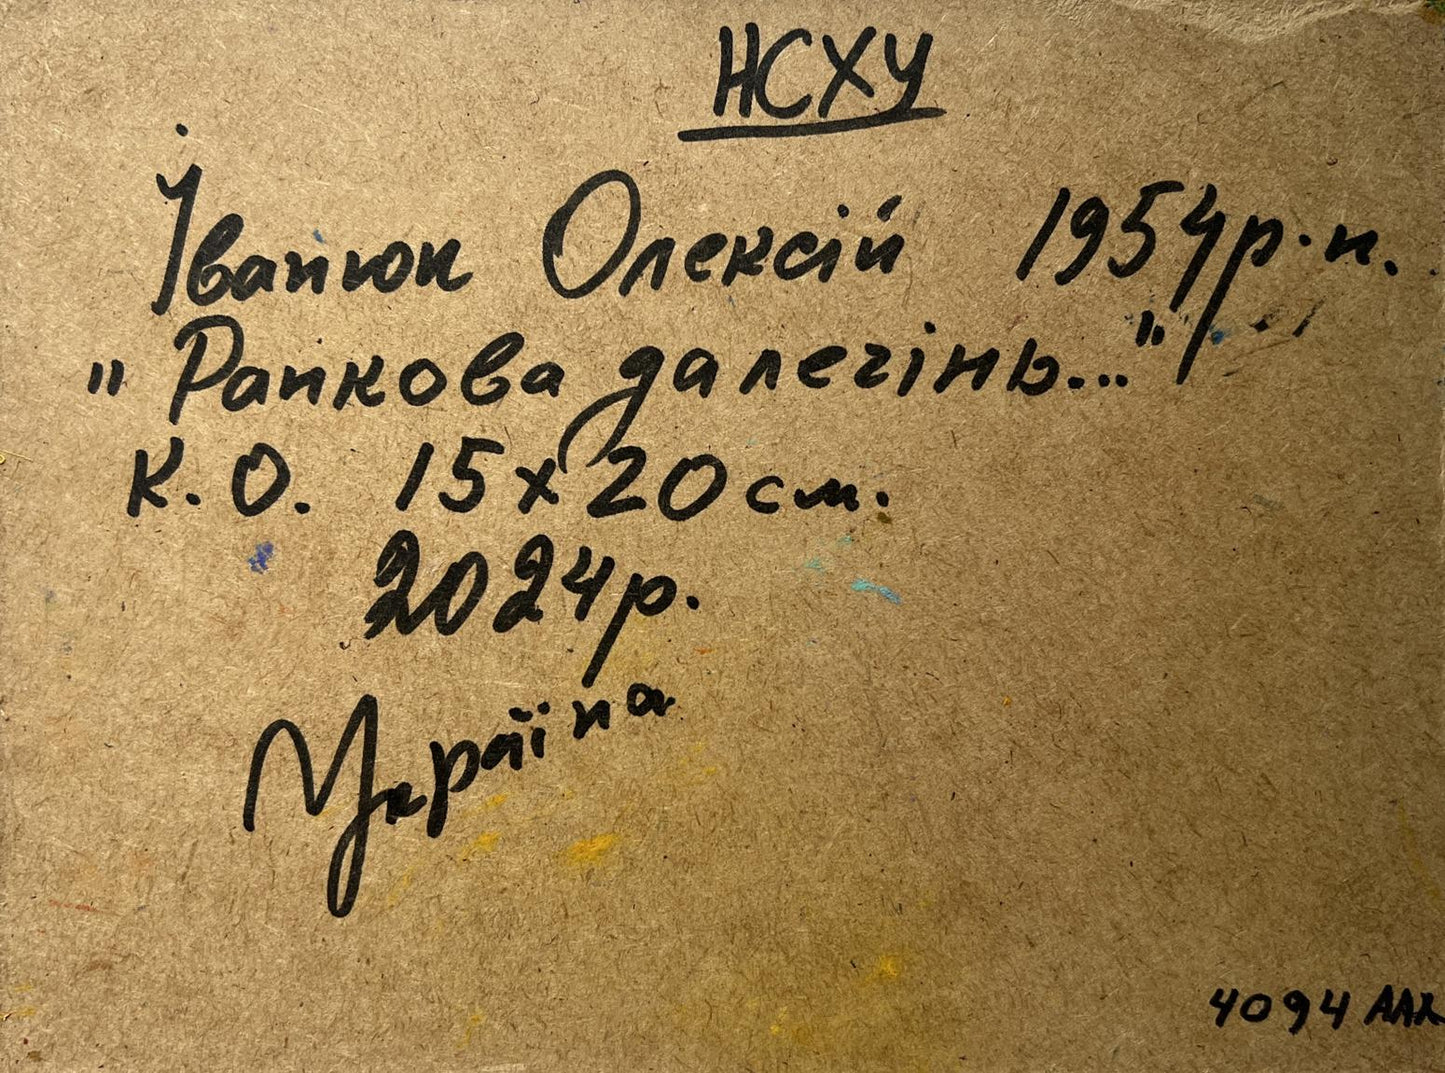 НСХУ
Іванюк Олексій 1954р.н.
"Ранкова далечінь..."
К.О. 15х20см.
2024р.
Україна
4094 ААК